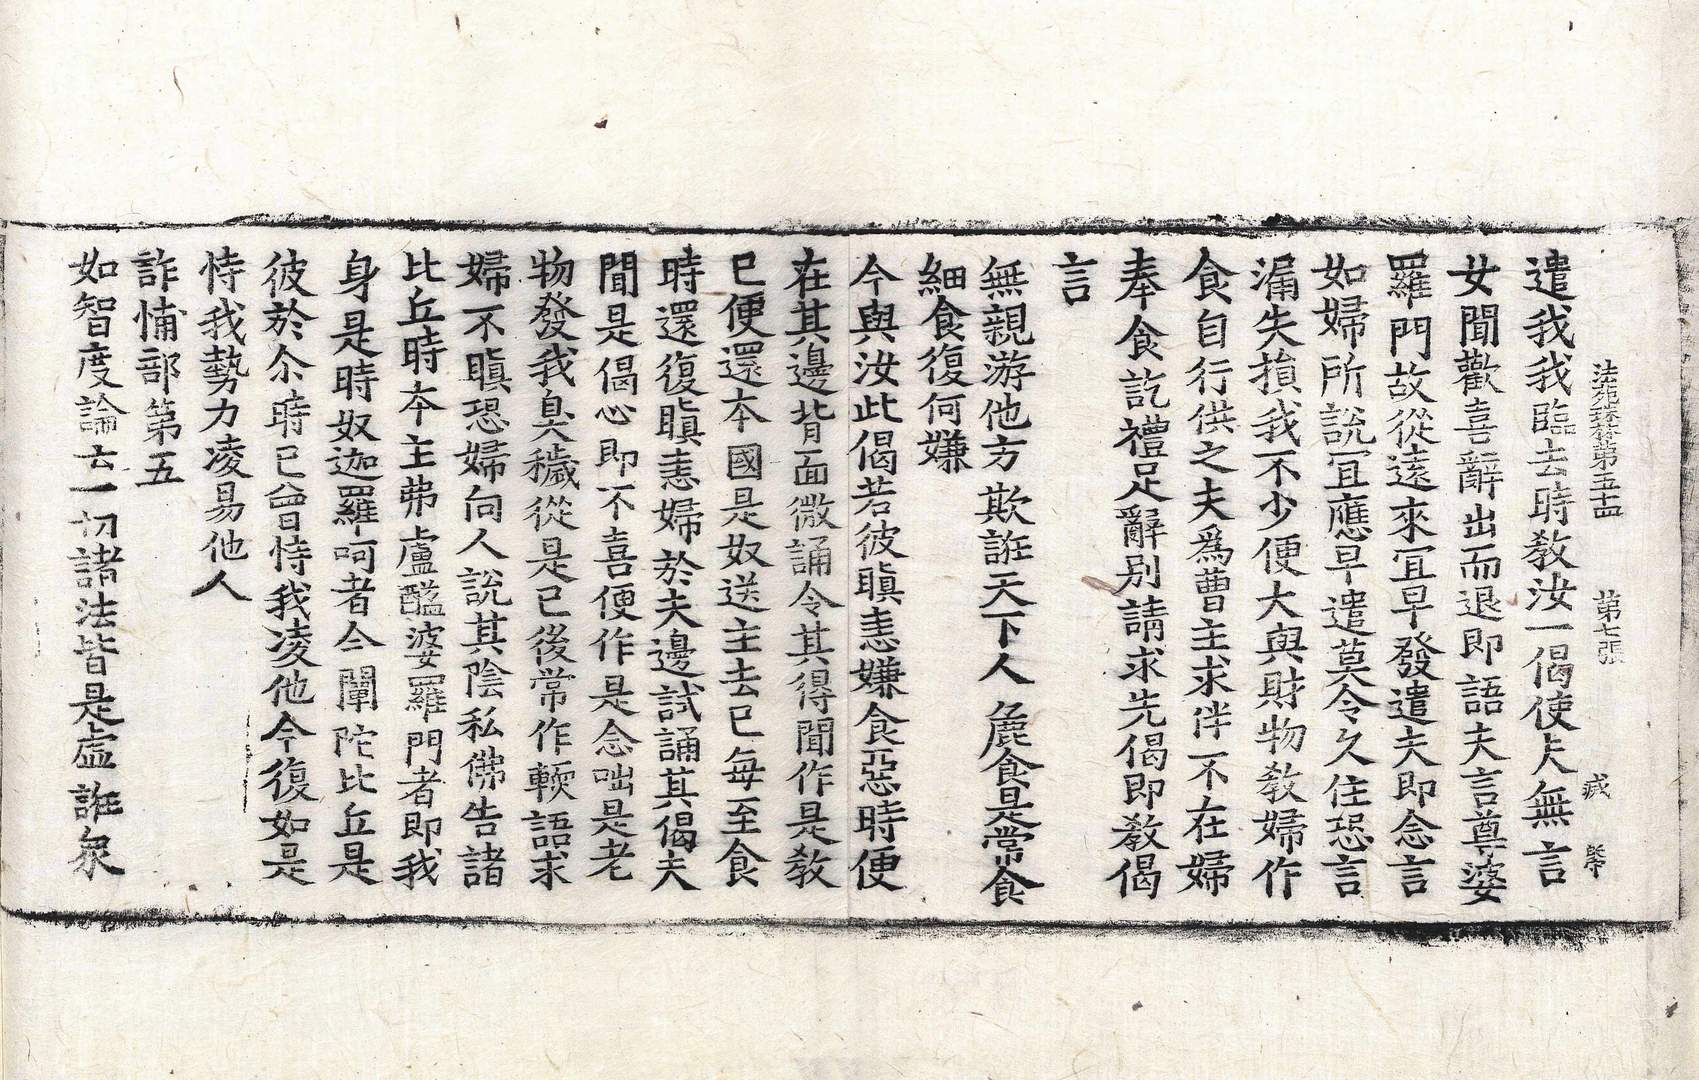 法苑珠林第五十四　第七張　　㦯
遣我我臨去時教汝一偈使夫無言
女聞歡喜辭出而退即語夫言尊婆
羅門故從遠來冝早發遣夫即念言
如婦所說冝應早遣莫令久住恐言
漏失損我不少便大與財物教婦作
食自行供之夫爲曹主求伴不在婦
奉食訖禮足辭別請求先偈即教偈
言
無親游他方　欺誑天下人　麁食是常食
細食復何嫌
今與汝此偈若彼瞋恚嫌食惡時便
在其邊背面微誦令其得聞作是教
已便還本國是奴送主去已每至食
時還復瞋恚婦於夫邊試誦其偈夫
聞是偈心即不喜便作是念咄是老
物發我臭穢從是已後常作輭語求
婦不瞋恐婦向人說其陰私佛告諸
比丘時本主弗盧醯婆羅門者即我
身是時奴迦羅呵者今闡陀比丘是
彼於尒時已曾恃我凌他今復如是
恃我勢力凌易他人
詐憜部第五
如智度論云一切諸法皆是虛誑衆